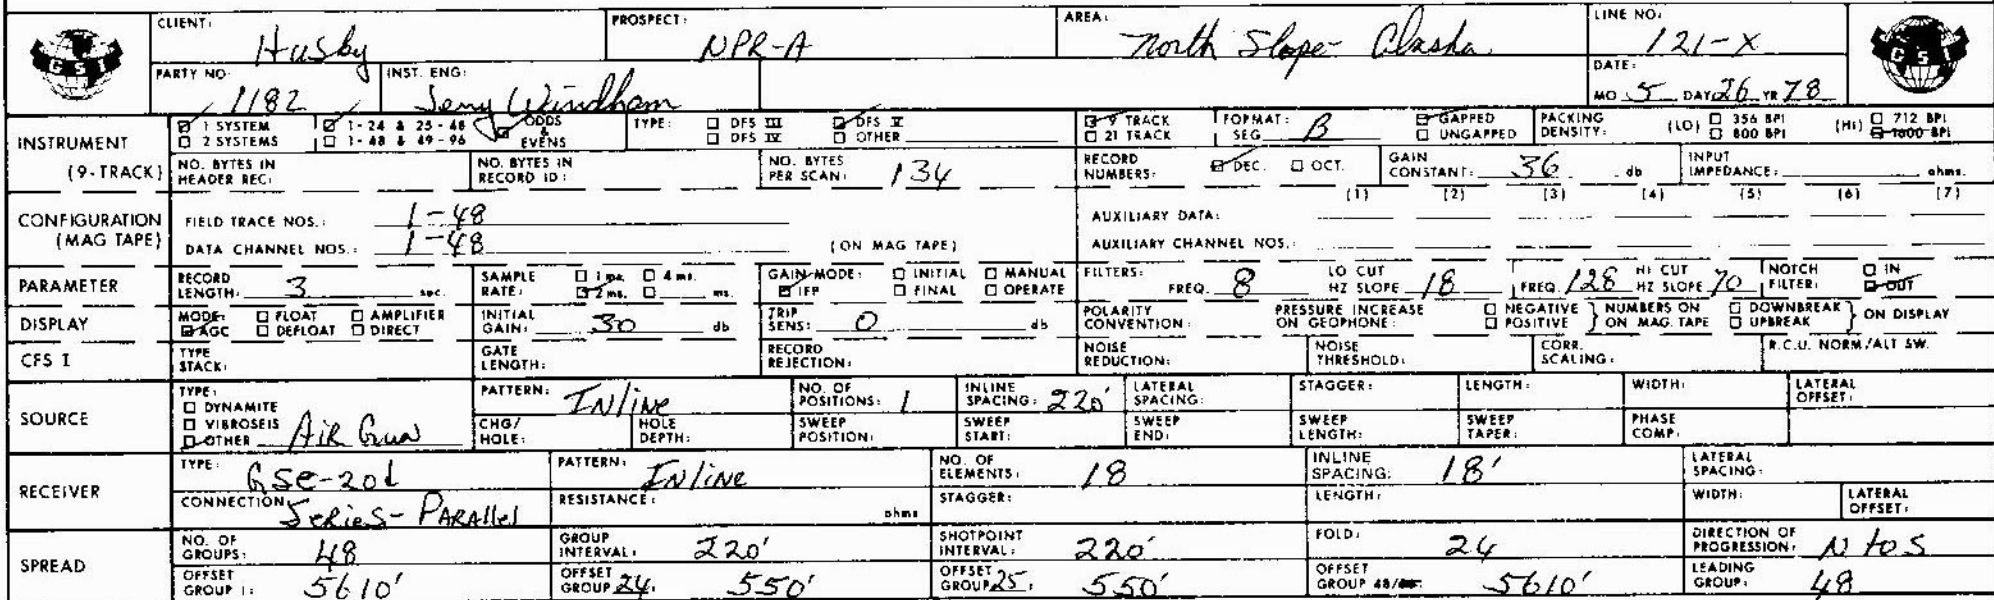 CLIENT: Husky PROSPECT: NPR-A AREA: North Slope - Alaska LINE NO: 121-X
GSI GSI
PARTY NO: 1182 INST. ENG: Jerry Windham DATE: MO 5 DAY 26 YR 78
INSTRUMENT (9-TRACK)
1 SYSTEM 1-24 & 25-48 ODDS & EVENS TYPE: DFS III DFS V 9 TRACK FORMAT: SEG B GAPPED PACKING DENSITY: (LO) 356 BPI (HI) 712 BPI
2 SYSTEMS 1-48 & 49-96 DFS IV OTHER 21 TRACK UNGAPPED 800 BPI 1600 BPI
NO. BYTES IN HEADER REC: NO. BYTES IN RECORD ID: NO. BYTES PER SCAN: 134 RECORD NUMBERS: DEC. OCT. GAIN CONSTANT: 36 db INPUT IMPEDANCE: ohms.
CONFIGURATION (MAG TAPE)
(1) (2) (3) (4) (5) (6) (7)
FIELD TRACE NOS.: 1-48 AUXILIARY DATA:
DATA CHANNEL NOS.: 1-48 (ON MAG TAPE) AUXILIARY CHANNEL NOS.:
PARAMETER RECORD LENGTH: 3 sec. SAMPLE RATE: 1 ms. 4 ms. 2 ms. ms. GAIN MODE: INITIAL MANUAL IFP FINAL OPERATE FILTERS: FREQ. 8 LO CUT HZ SLOPE 18 FREQ. 128 HI CUT HZ SLOPE 70 NOTCH FILTER: IN OUT
DISPLAY MODE: FLOAT AMPLIFIER AGC DEFLOAT DIRECT INITIAL GAIN: 30 db TRIP SENS: 0 db POLARITY CONVENTION: PRESSURE INCREASE ON GEOPHONE: NEGATIVE POSITIVE NUMBERS ON MAG. TAPE DOWNBREAK UPBREAK ON DISPLAY
CFS I TYPE STACK: GATE LENGTH: RECORD REJECTION: NOISE REDUCTION: NOISE THRESHOLD: CORR. SCALING: R.C.U. NORM/ALT SW.
SOURCE TYPE: DYNAMITE VIBROSEIS OTHER Air Gun
PATTERN: INline NO. OF POSITIONS: 1 INLINE SPACING: 220' LATERAL SPACING: STAGGER: LENGTH: WIDTH: LATERAL OFFSET:
CHG/HOLE: HOLE DEPTH: SWEEP POSITION: SWEEP START: SWEEP END: SWEEP LENGTH: SWEEP TAPER: PHASE COMP:
RECEIVER TYPE: GSC-20d PATTERN: INline NO. OF ELEMENTS: 18 INLINE SPACING: 18' LATERAL SPACING:
CONNECTION: Series-Parallel RESISTANCE: ohms STAGGER: LENGTH: WIDTH: LATERAL OFFSET:
SPREAD NO. OF GROUPS: 48 GROUP INTERVAL: 220' SHOTPOINT INTERVAL: 220' FOLD: 24 DIRECTION OF PROGRESSION: N to S
OFFSET GROUP 1: 5610' OFFSET GROUP 24: 550' OFFSET GROUP 25: 550' OFFSET GROUP 48/ 5610' LEADING GROUP: 48